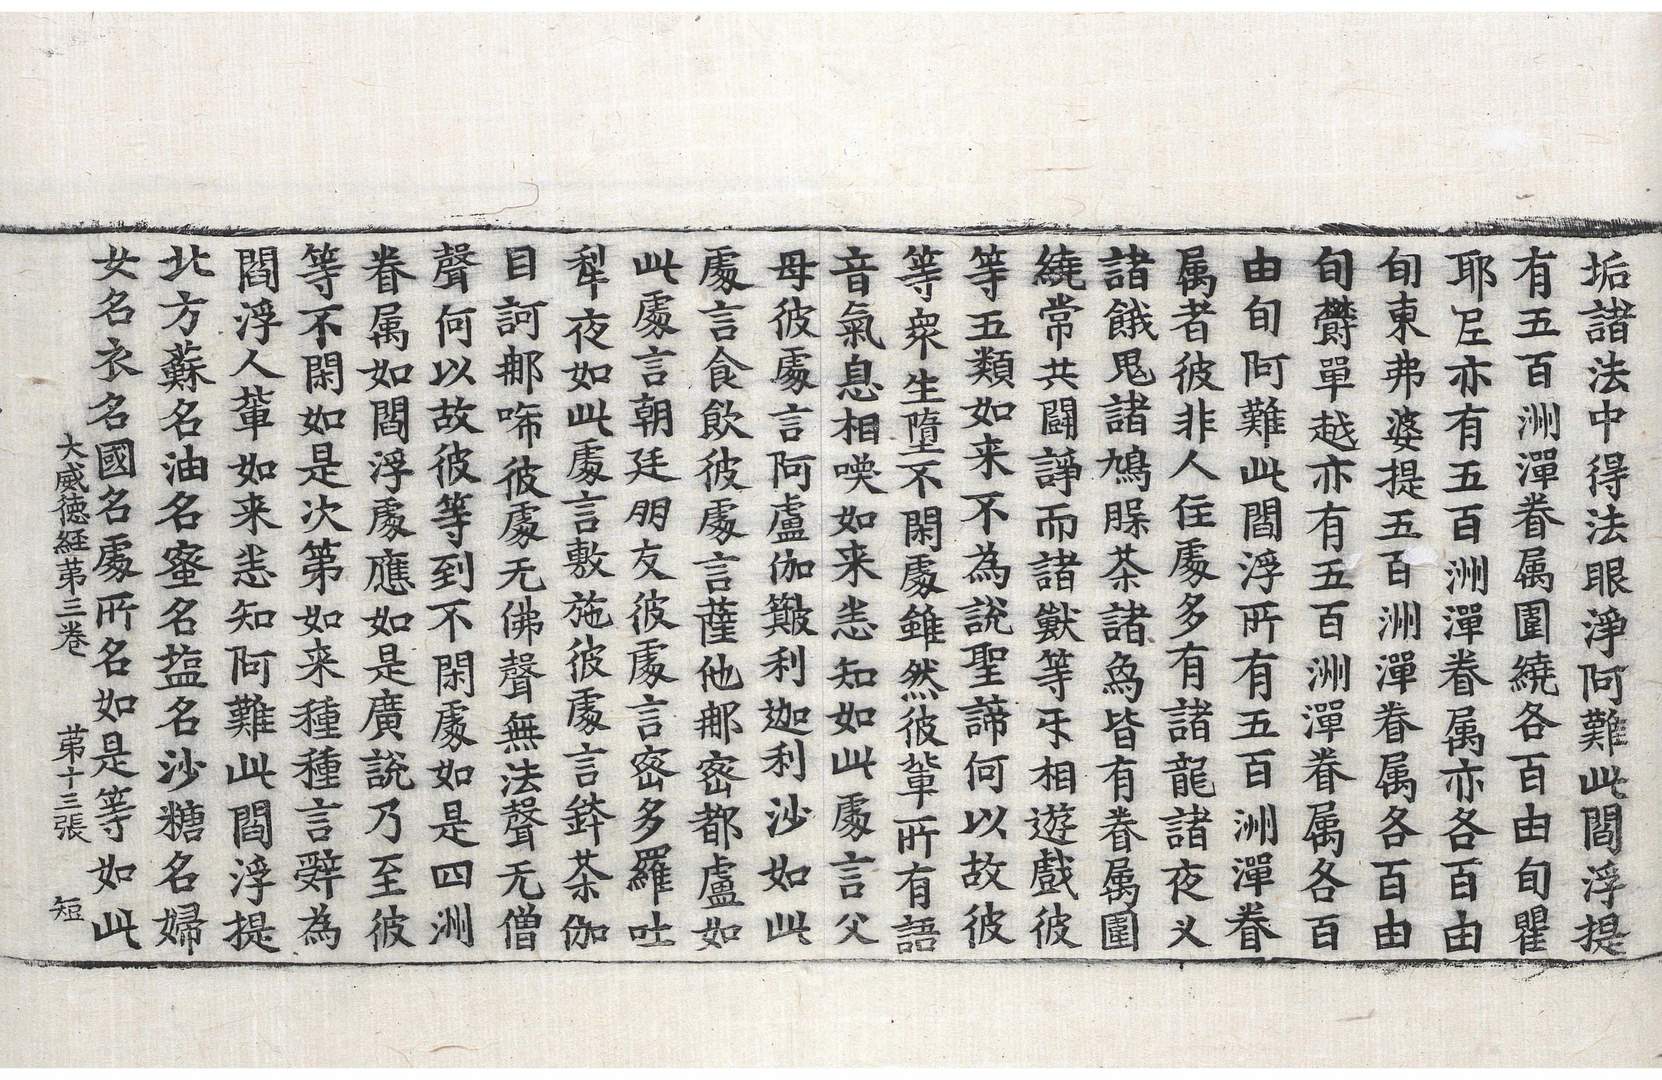 垢諸法中得法眼淨阿難此閻浮提
有五百洲潬眷属圍繞各百由旬瞿
耶𡰱亦有五百洲潬眷属亦各百由
旬東弗婆提五百洲潬眷属各百由
旬欝單越亦有五百洲潬眷属各百
由旬阿難此閻浮所有五百洲潬眷
属者彼非人住處多有諸龍諸夜叉
諸餓鬼諸鳩槃茶諸鳥皆有眷属圍
繞常共闘諍而諸獸等牙相遊戲彼
等五類如来不為說聖諦何以故彼
等衆生墮不閑處雖然彼輩所有語
音氣息相喚如来悉知如此處言父
母彼處言阿盧伽䶎利迦利沙如此
處言食飲彼處言薩他那密都盧如
此處言朝廷朋友彼處言密多羅吐
犁夜如此處言敷施彼處言鉾茶伽
目訶那唏彼處无佛聲無法聲无僧
聲何以故彼等到不閑處如是四洲
眷属如閻浮處應如是廣說乃至彼
等不閑如是次第如来種種言辭為
閻浮人輩如来悉知阿難此閻浮提
北方蘇名油名蜜名塩名沙糖名婦
女名衣名國名處所名如是等如此
大威徳経苐三卷 苐十三張 短